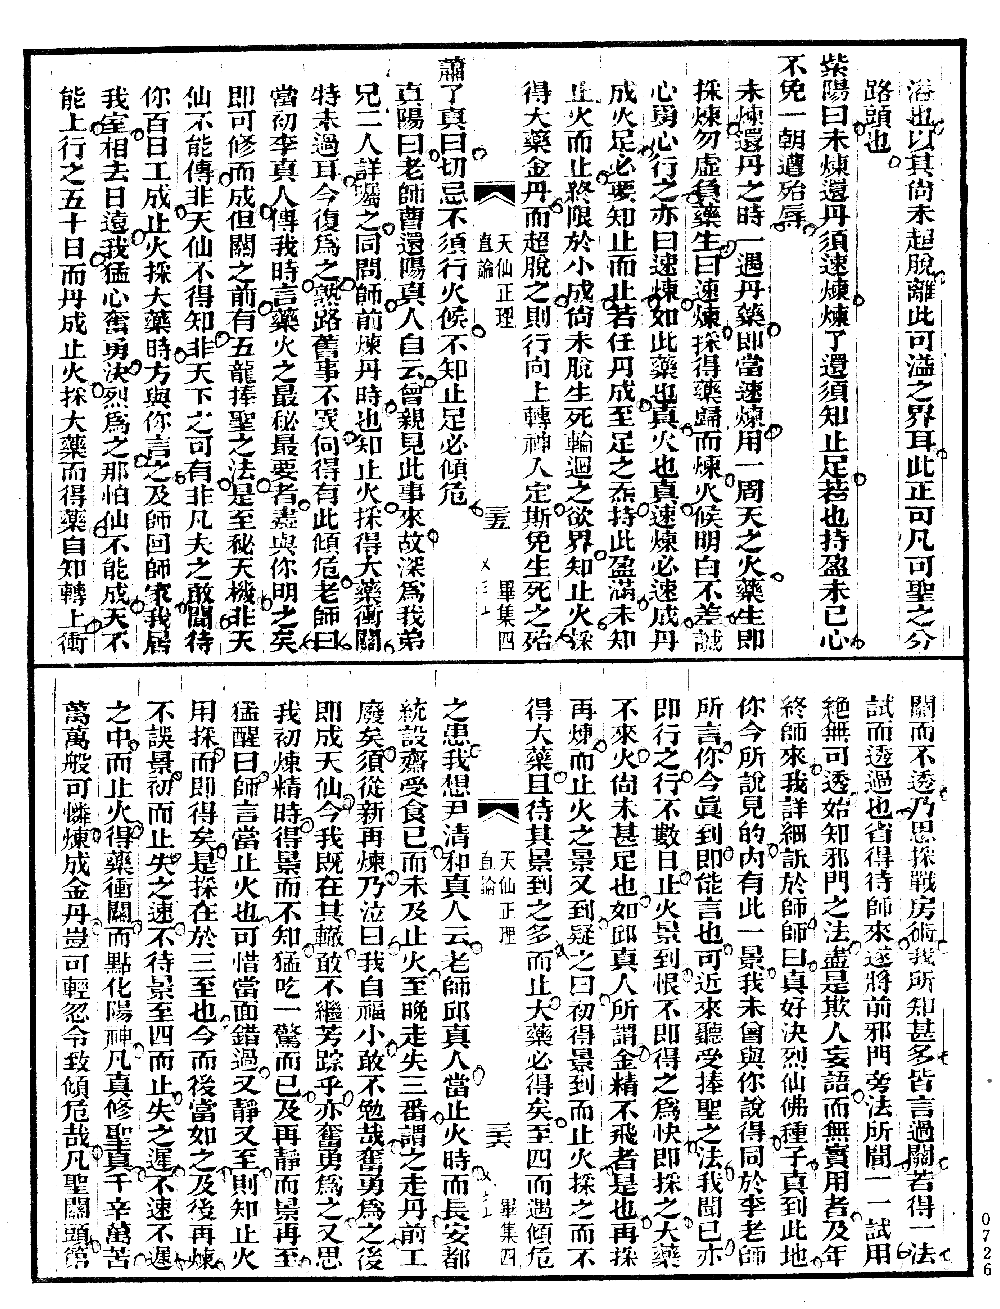 浴也以其尚未超脫離此可溢之界耳此正可凡可聖之分
路頭也
紫陽曰未煉還丹須速煉煉了還須知止足若也持盈未已心
不免一朝遭殆辱
未煉還丹之時一遇丹藥即當速煉用一周天之火藥生即
採煉勿虛負藥生曰速煉採得藥歸而煉火候明白不差誠
心勇心行之亦曰速煉如此藥也真火也真速煉必速成丹
成火足必要知止而止若任丹成至足之而持此盈滿未知
止火而止終限於小成尚未脫生死輪迴之欲界知止火採
得大藥金丹而超脫之則行向上轉神入定斯免生死之殆
天仙正理
直論
三五
畢集四
蕭了真曰切忌不須行火候不知止足必傾危
真陽曰老師曹還陽真人自云曾親見此事來故深為我弟
兄二人詳囑之同問師前煉丹時也知止火採得大藥衝關
特未過耳今復為之熟路舊事不異何得有此傾危老師曰
當初李真人傳我時言藥火之最秘最要者盡與你明之矣
即可修而成但關之前有五龍捧聖之法是至秘天機非天
仙不能傳非天仙不得知非天下之可有非凡夫之敢聞待
你百日工成止火採大藥時方與你言之及師回師家我居
我室相去日遠我猛心奮勇決烈為之那怕仙不能成天不
能上行之五十日而丹成止火採大藥而得藥自知轉上衝
關而不透乃思採戰房術我所知甚多皆言過關若得一法
試而透過也省得待師來遂將前邪門旁法所聞一一試用
絕無可透始知邪門之法盡是欺人妄語而無實用者及年
終師來我詳細訴於師師曰真好決烈仙佛種子真到此地
你今所說見的內有此一景我未曾與你說得同於李老師
所言你今真到即能言也可近來聽受捧聖之法我聞已亦
即行之行不數日止火景到恨不即得之為快即採之大藥
不來火尚未甚足也如邱真人所謂金精不飛者是也再採
再煉而止火之景又到疑之曰初得景到而止火採之而不
得大藥且待其景到之多而止大藥必得矣至四而遇傾危
天仙正理
直論
三六
畢集四
之患我想尹清和真人云老師邱真人當止火時而長安都
統設齋受食已而未及止火至晚走失三番謂之走丹前工
廢矣須從新再煉乃泣曰我自福小敢不勉哉奮勇為之後
即成天仙今我既在其轍敢不繼芳踪乎亦奮勇為之又思
我初煉精時得景而不知猛吃一驚而已及再靜而景再至
猛醒曰師言當止火也可惜當面錯過又靜又至則知止火
用採而即得矣是採在於三至也今而後當如之及後再煉
不誤景初而止失之速不待景至四而止失之遲不速不遲
之中而止火得藥衝關而點化陽神凡真修聖真千辛萬苦
萬萬般可憐煉成金丹豈可輕忽令致傾危哉凡聖關頭第
0726